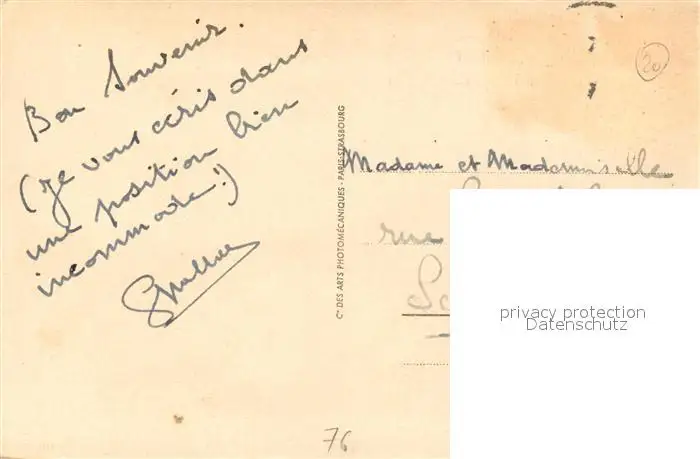 Bon Souvenir.
(je vous écris dans
une position bien
incommode !)
Cie DES ARTS PHOTOMÉCANIQUES - PARIS-STRASBOURG
20
Madame et Mademoiselle
rue
privacy protection
Datenschutz
76